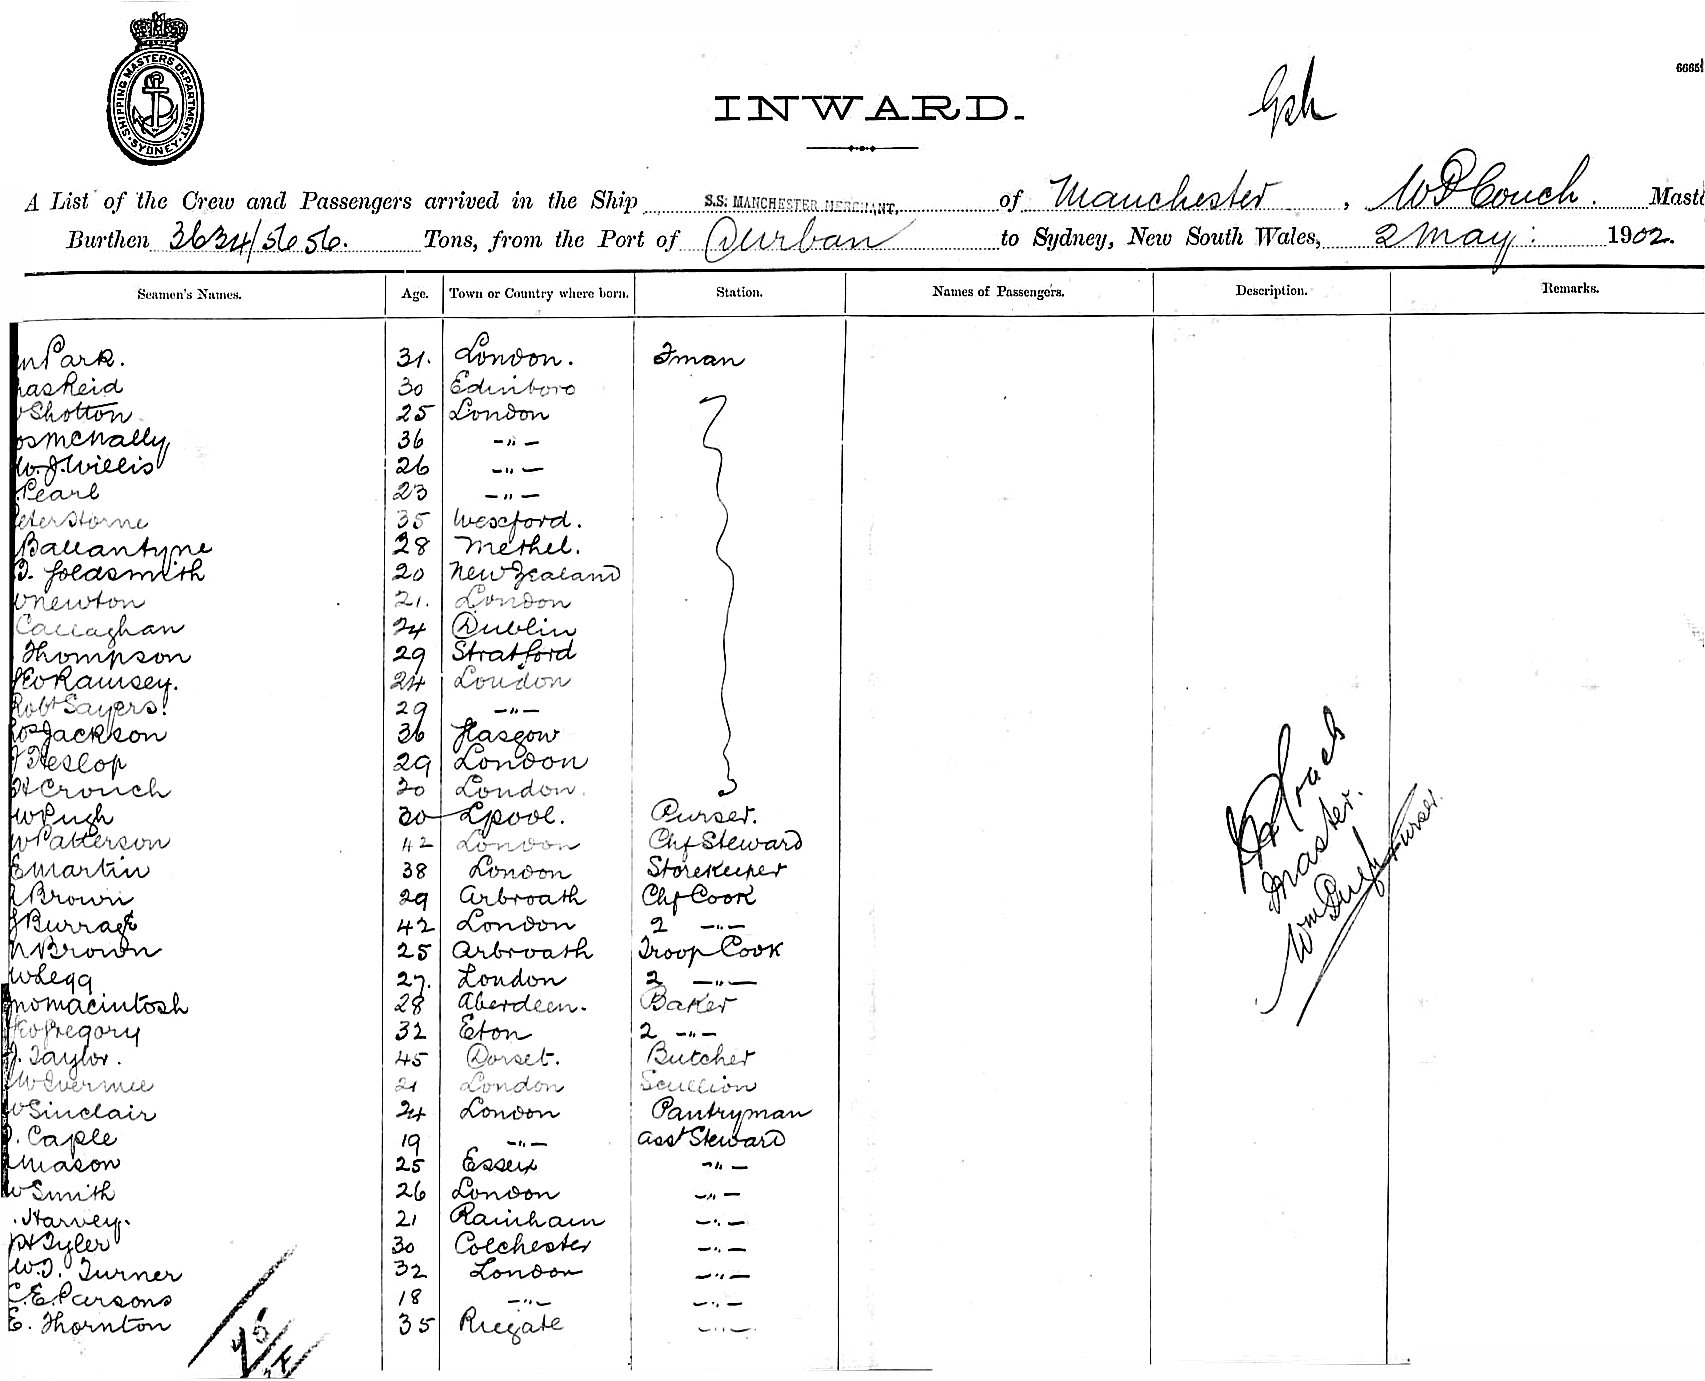 SHIPPING MASTERS DEPARTMENT
SYDNEY
6665
INWARD.
A List of the Crew and Passengers arrived in the Ship S.S. MANCHESTER MERCHANT, of Manchester, W P Couch. Maste
Burthen 3634/5656. Tons, from the Port of Durban to Sydney, New South Wales, 2 May: 1902.
Seamen's Names. Age. Town or Country where born. Station. Names of Passengers. Description. Remarks.
Park. 31. London. Fman
Reid 30 Edinboro
Shotton 25 London
McNally 36 -"-
W. J. Willis 26 -"-
Pearl 23 -"-
eter 35 Wexford.
Ballantyne 28 Methel.
Goldsmith 20 New Zealand
Newton 21. London
Callaghan 24 Dublin
Thompson 29 Stratford
Ramsey. 24 London
Robt Sayers. 29 -"-
Jackson 36 Glasgow
Heslop 29 London
H Crouch 30 London.
W Pugh 30 Lpool. Purser.
W Patterson 42 London Chf Steward
E Martin 38 London Storekeeper
Brown 29 Arbroath Chf Cook
Burrage 42 London 2 -"-
Brown 25 Arbroath Troop Cook
W Legg 27. London 2 -"-
Jno Macintosh 28 Aberdeen. Baker
Geo Gregory 32 Eton 2 -"-
J. Taylor. 45 Dorset. Butcher
W Ivermee 21 London Scullion
W Sinclair 24 London Pantryman
Caple 19 -"- Asst Steward
Mason 25 Essex -"-
W Smith 26 London -"-
Harvey. 21 Rainham -"-
H Tyler 30 Colchester -"-
W. J. Turner 32 London -"-
C. E. Parsons 18 -"- -"-
E. Thornton 35 Riegate -"-
W P Couch
Master.
Wm Pugh Purser.